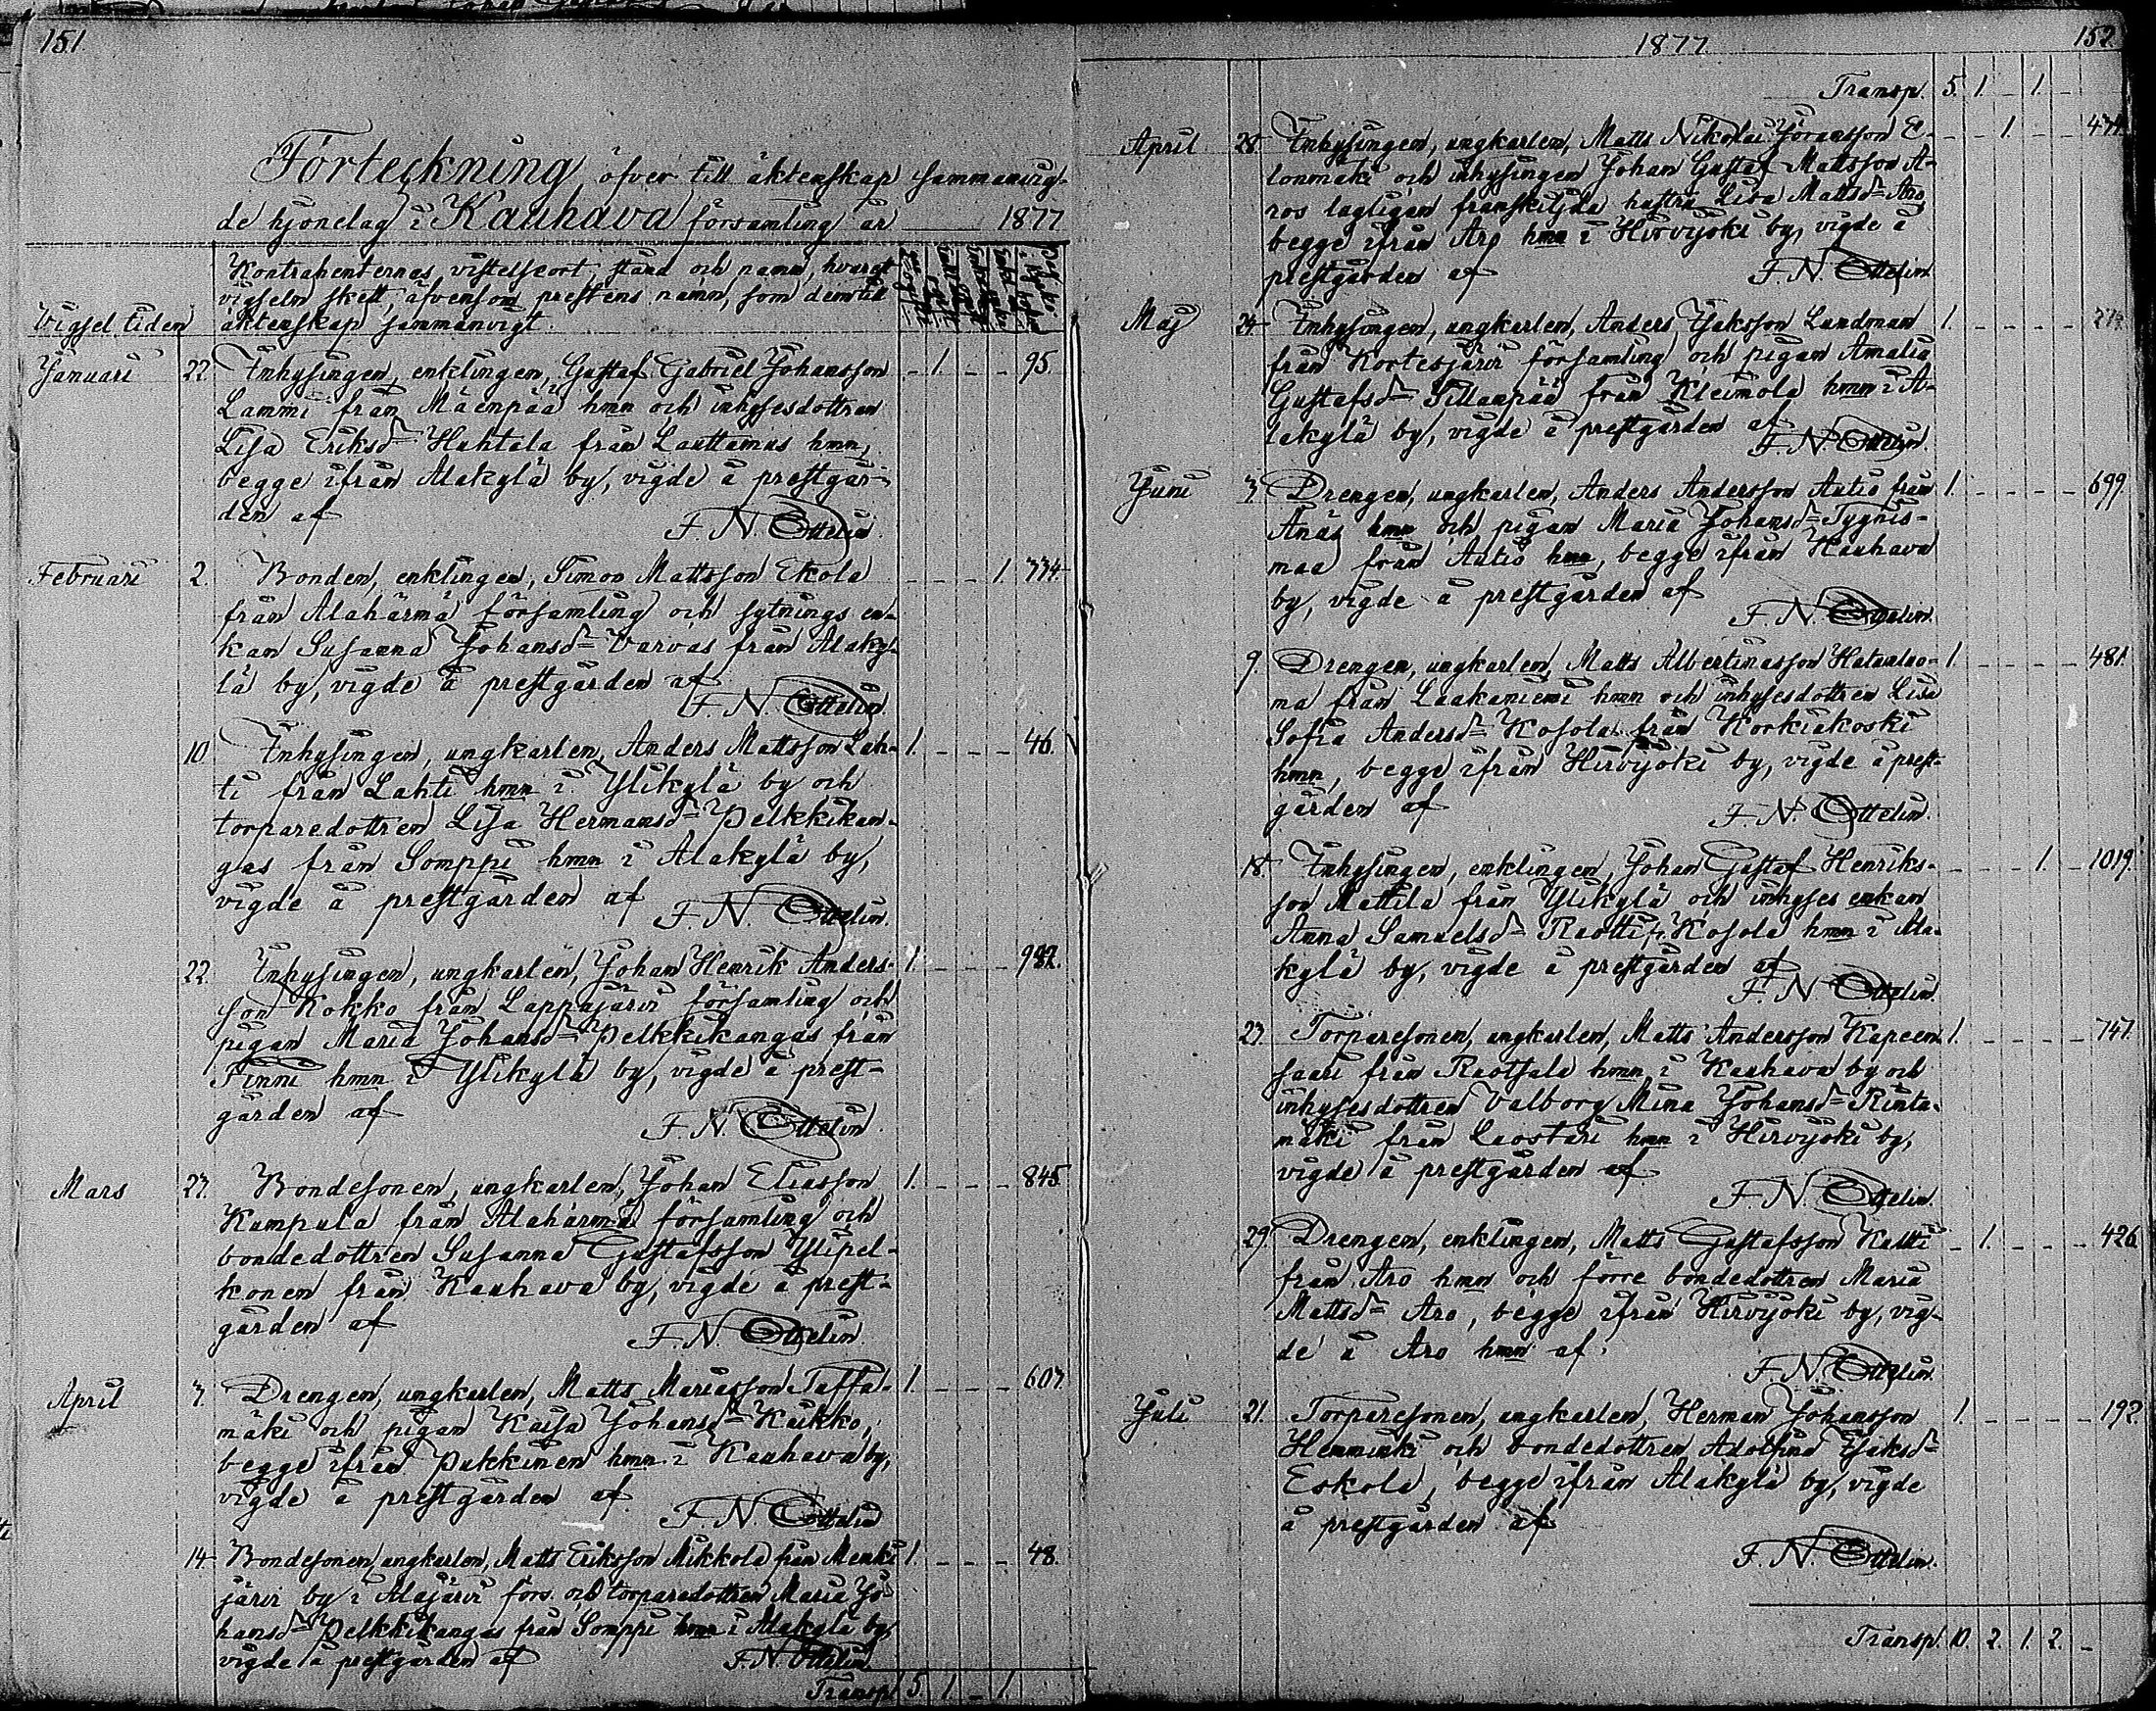 151
Förteckning öfver till äktenskap sammanvig-
de hjonelag i Kauhava församling år 1877
Kontrahenternas vistelseort, stånd och namn, hvarest
vigseln skett, äfvensom prestens namn, som dem till
Vigsel tiden äktenskap sammanvigt.
Januari 22. Inhysingen, enklingen, Gustaf Gabriel Johansson - 1. - - 95.
Lammi från Mäenpää hmn och inhysesdottren
Lisa Eriksd= Huhtala från Lauttamus hmn,
begge ifrån Alakylä by, vigde å prestgår-
den af F. N. Ottelin.
Februari 2. Bonden, enklingen, Simon Mattsson Ekola - - - 1. 334.
från Alahärmä församling och sytnings en-
kan Susanna Johansd= Varvas från Alaky-
lä by, vigde å prestgården af
F. N. Ottelin.
10. Inhysingen, ungkarlen, Anders Mattsson Lah- 1. - - - 46.
ti från Lahti hmn i Ylikylä by och
torparedottren Lisa Hermansd= Pelkkikan-
gas från Somppi hmn i Alakylä by,
vigde å prestgården af
F. N. Ottelin.
22. Inhysingen, ungkarlen, Johan Henrik Anders- 1. - - -
son Kokko från Lappajärvi församling och
pigan Maria Johansd= Pelkkikangas från
Finni hmn i Ylikylä by, vigde å prest-
gården af
F. N. Ottelin.
Mars 27. Bondesonen, ungkarlen, Johan Eliasson 1. - - - 845.
Kumpula från Alahärmä församling och
bondedottren Susanna Gustafsson Ylipel-
konen från Kauhava by, vigde å prest-
gården af
F. N. Ottelin
April 7. Drengen, ungkarlen, Matts Mariasson Tassa- 1. - - - 607.
mäki och pigan Kaisa Johansd= Kukko,
begge ifrån Pukkinen hmn i Kauhava by,
vigde å prestgården af
F. N. Ottelin
14. Bondesonen, ungkarlen, Matts Eriksson Mikkola från Menki 1. - - - 48.
järvi by i Alajärvi förs. och torparedottren Maria Jo-
hansd= Pelkkikangas från Somppi hmn i Alakylä by,
vigde å prestgården af F. N. Ottelin
Transp. 5 1 - 1.
1877. 152.
Transp. 5. 1. - 1. -
April 28. Inhysingen, ungkarlen, Matts Nikolai Jöransson E- - - 1. - -
lonmäki och inhysingen Johan Gustaf Mattsson A-
ros lagligen franskiljda hustru Lisa Mattsd= Aro,
begge ifrån Aro hmn i Hirvijoki by, vigde å
prestgården af F. N. Ottelin.
Maj 24. Inhysingen, ungkarlen, Anders Isaksson Lundman 1. - - - -
från Kortesjärvi församling och pigan Amalia
Gustafsd= Sillanpää från Kleimola hmn i A-
lakylä by, vigde å prestgården af
F. N. Ottelin.
Juni 3. Drengen, ungkarlen, Anders Andersson Autio från 1. - - - - 699.
Änäs hmn och pigan Maria Johansd= Tyynis-
maa från Autio hmn, begge ifrån Kauhava
by, vigde å prestgården af
F. N. Ottelin.
9. Drengen, ungkarlen, Matts Albertinasson Hatunluo- 1. - - - - 481.
ma från Laakaniemi hmn och inhysesdottren Lisa
Sofia Andersd= Kosola från Korkiakoski
hmn, begge ifrån Hirvijoki by, vigde å prest-
gården af F. N. Ottelin.
18. Inhysingen, enklingen, Johan Gustaf Henriks- - - - 1. - 1019.
son Mattila från Ylikylä och inhyses enkan
Anna Samuelsd= Ruotti fr. Kosola hmn i Ala-
kylä by, vigde å prestgården af
F. N. Ottelin.
23. Torparesonen, ungkarlen, Matts Andersson Kapeen- 1. - - - - 747.
saari från Ruotsala hmn i Kauhava by och
inhysesdottren Valborg Mina Johansd= Rinta-
mäki från Luostari hmn i Hirvijoki by,
vigde å prestgården af
F. N. Ottelin.
29. Drengen, enklingen, Matts Gustafsson Kultti - 1. - - - 426.
från Aro hmn och förre bondedottren Maria
Mattsd= Aro, begge ifrån Hirvijoki by, vig-
de å Aro hmn af.
F. N. Ottelin.
Juli 21. Torparesonen, ungkarlen, Herman Johansson 1. - - - - 192.
Hemminki och bondedottren Adolfina Isaksd=
Eskola, begge ifrån Alakylä by, vigde
å prestgården af
F. N. Ottelin.
Transp. 10. 2. 1. 2. -